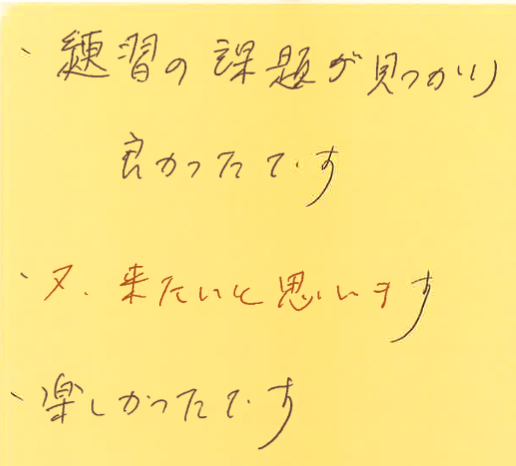 ・練習の課題が見つかり
良かったです
・又、来たいと思います
・楽しかったです